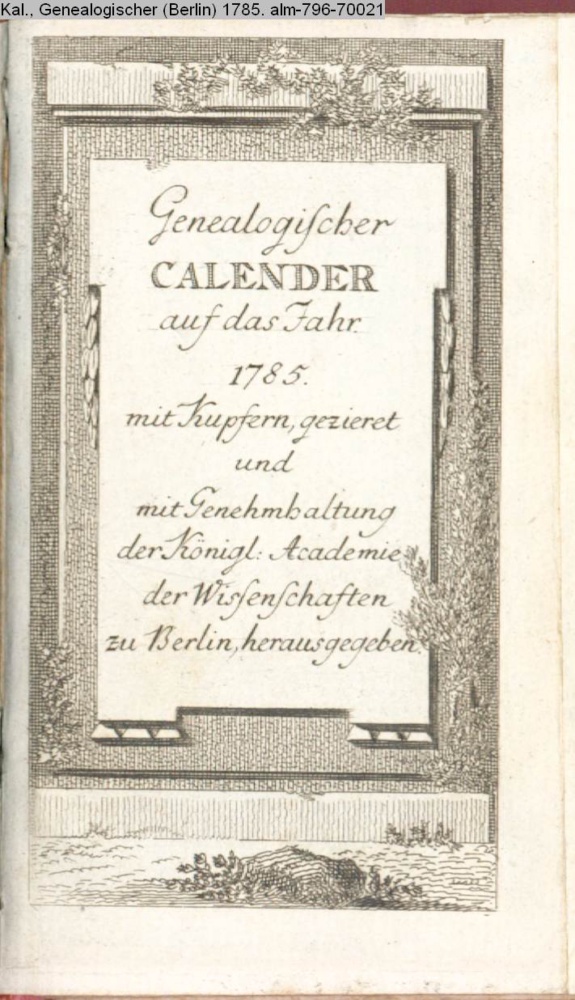 Kal., Genealogischer (Berlin) 1785. alm-796-70021
Genealogiſcher
CALENDER
auf das Jahr
1785.
mit Kupfern, gezieret
und
mit Genehmhaltung
der Königl: Academie
der Wiſſenſchaften
zu Berlin, herausgegeben.